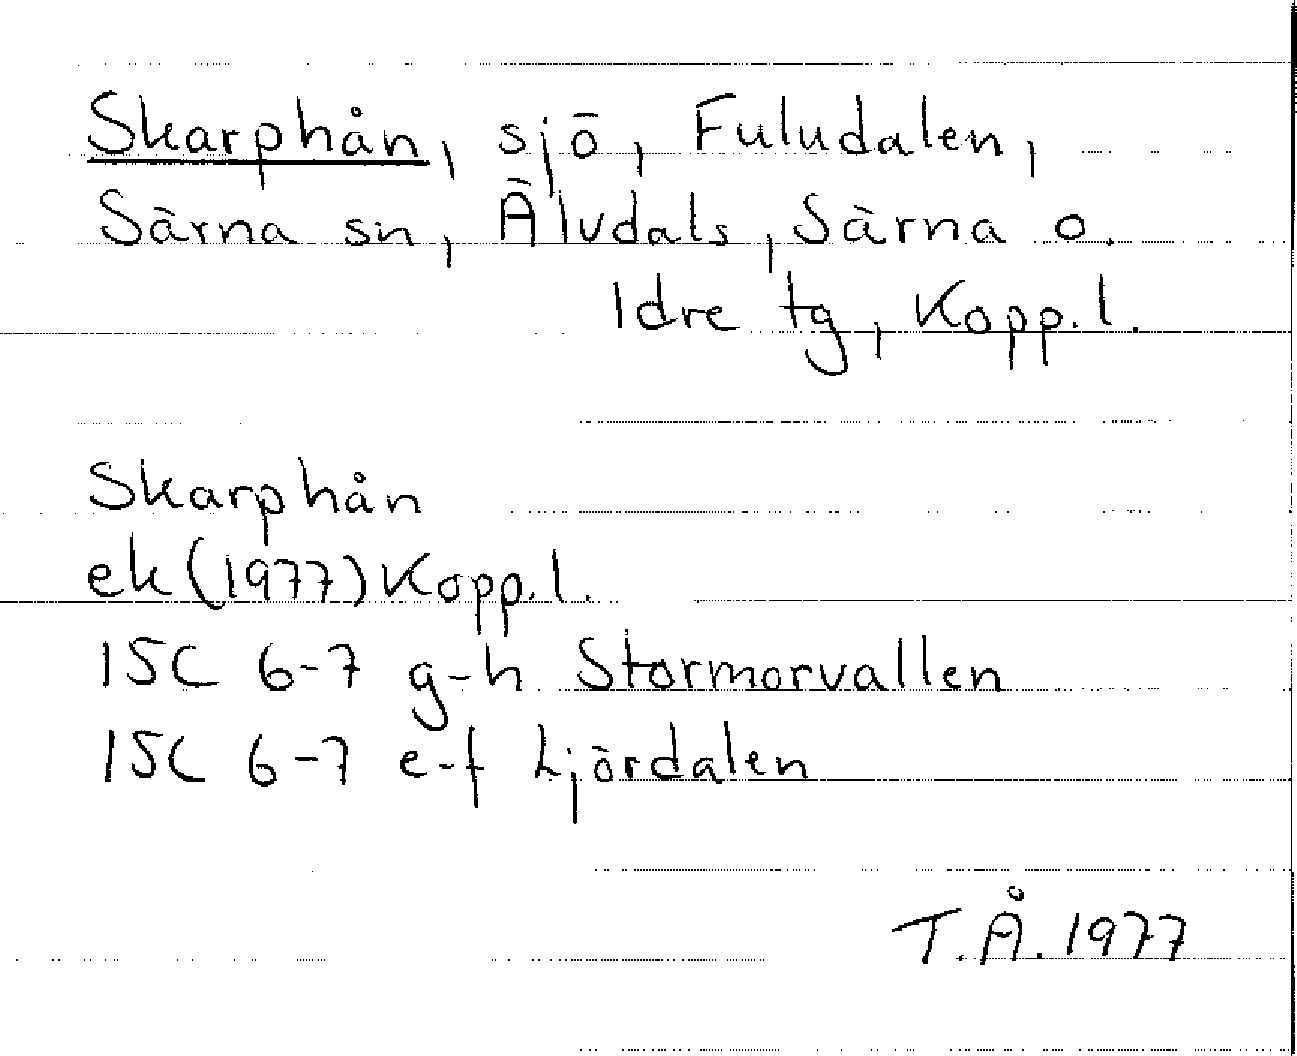 Skarphån, sjö, Fuludalen,
Särna sn, Älvdals, Särna o.
Idre tg, Kopp.l.
Skarphån
ek (1977) Kopp.l.
15C 6-7 g-h Stormorvallen
15C 6-7 e-f Ljördalen
T.Å. 1977